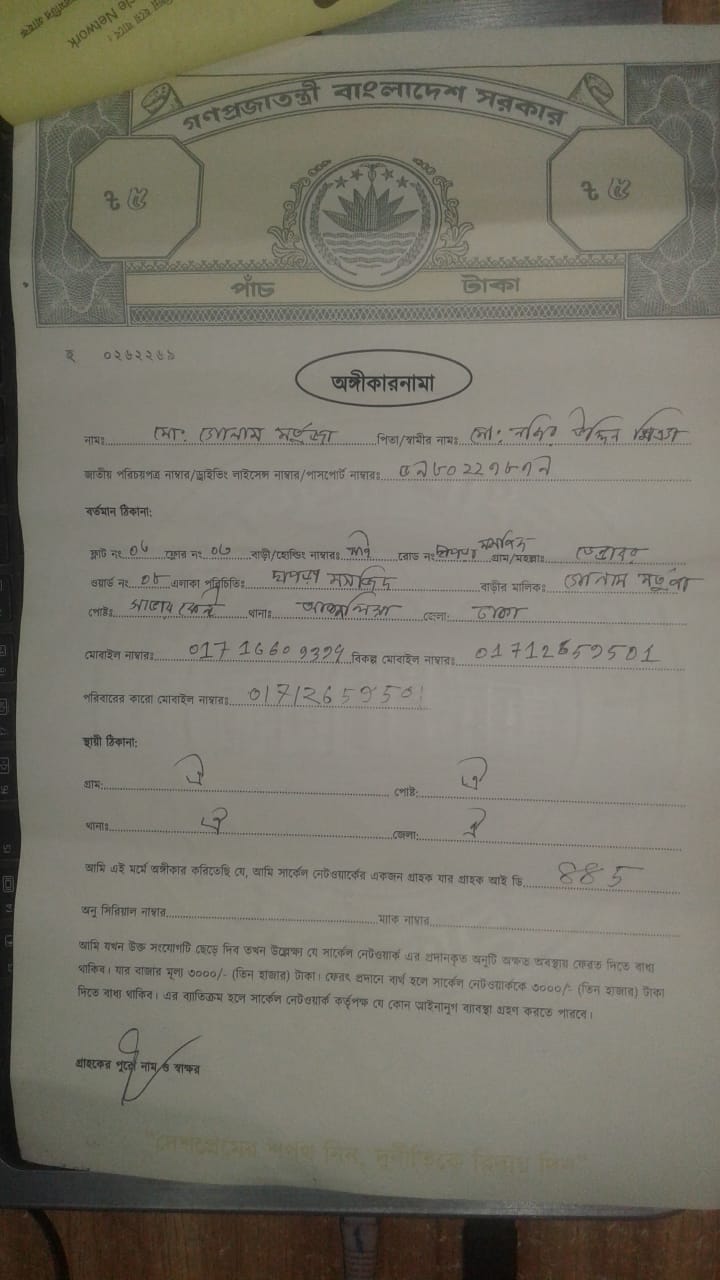 cle Network
গণপ্রজাতন্ত্রী বাংলাদেশ সরকার
৳ ৫ ৳ ৫
পাঁচ টাকা
হ ০২৬২২৬৯
অঙ্গীকারনামা
নামঃ মো: গোলাম মর্তুজা পিতা/স্বামীর নামঃ মো: উদ্দিন মিঞা
জাতীয় পরিচয়পত্র নাম্বার/ড্রাইভিং লাইসেন্স নাম্বার/পাসপোর্ট নাম্বারঃ
বর্তমান ঠিকানা:
ফ্লাট নং ফ্লোর নং বাড়ী/হোল্ডিং নাম্বারঃ রোড নং গ্রাম/মহল্লাঃ
ওয়ার্ড নং ০৮ এলাকা পরিচিতিঃ মসজিদ বাড়ীর মালিক: গোলাম মর্তুজা
পোষ্টঃ সাভার কেন্ট থানাঃ আশুলিয়া জেলা: ঢাকা
মোবাইল নাম্বারঃ বিকল্প মোবাইল নাম্বারঃ 01712659501
পরিবারের কারো মোবাইল নাম্বারঃ 01712659501
স্থায়ী ঠিকানা:
গ্রাম: ঐ পোষ্ট: ঐ
থানাঃ ঐ জেলা: ঐ
আমি এই মর্মে অঙ্গীকার করিতেছি যে, আমি সার্কেল নেটওয়ার্কের একজন গ্রাহক যার গ্রাহক আই ডি. ৪৪5
অনু সিরিয়াল নাম্বার ম্যাক নাম্বার
আমি যখন উক্ত সংযোগটি ছেড়ে দিব তখন উল্লেক্ষ্য যে সার্কেল নেটওয়ার্ক এর প্রদানকৃত অনুটি অক্ষত অবস্থায় ফেরত দিতে বাধ্য
থাকিব। যার বাজার মূল্য ৩০০০/- (তিন হাজার) টাকা। ফেরৎ প্রদানে ব্যর্থ হলে সার্কেল নেটওয়ার্ককে ৩০০০/- (তিন হাজার) টাকা
দিতে বাধ্য থাকিব। এর ব্যতিক্রম হলে সার্কেল নেটওয়ার্ক কর্তৃপক্ষ যে কোন আইনানুগ ব্যাবস্থা গ্রহণ করতে পারবে।
গ্রাহকের পুরো নাম ও স্বাক্ষর
"দেশপ্রেমের শপথ নিন, দুর্নীতিকে বিদায় দিন"